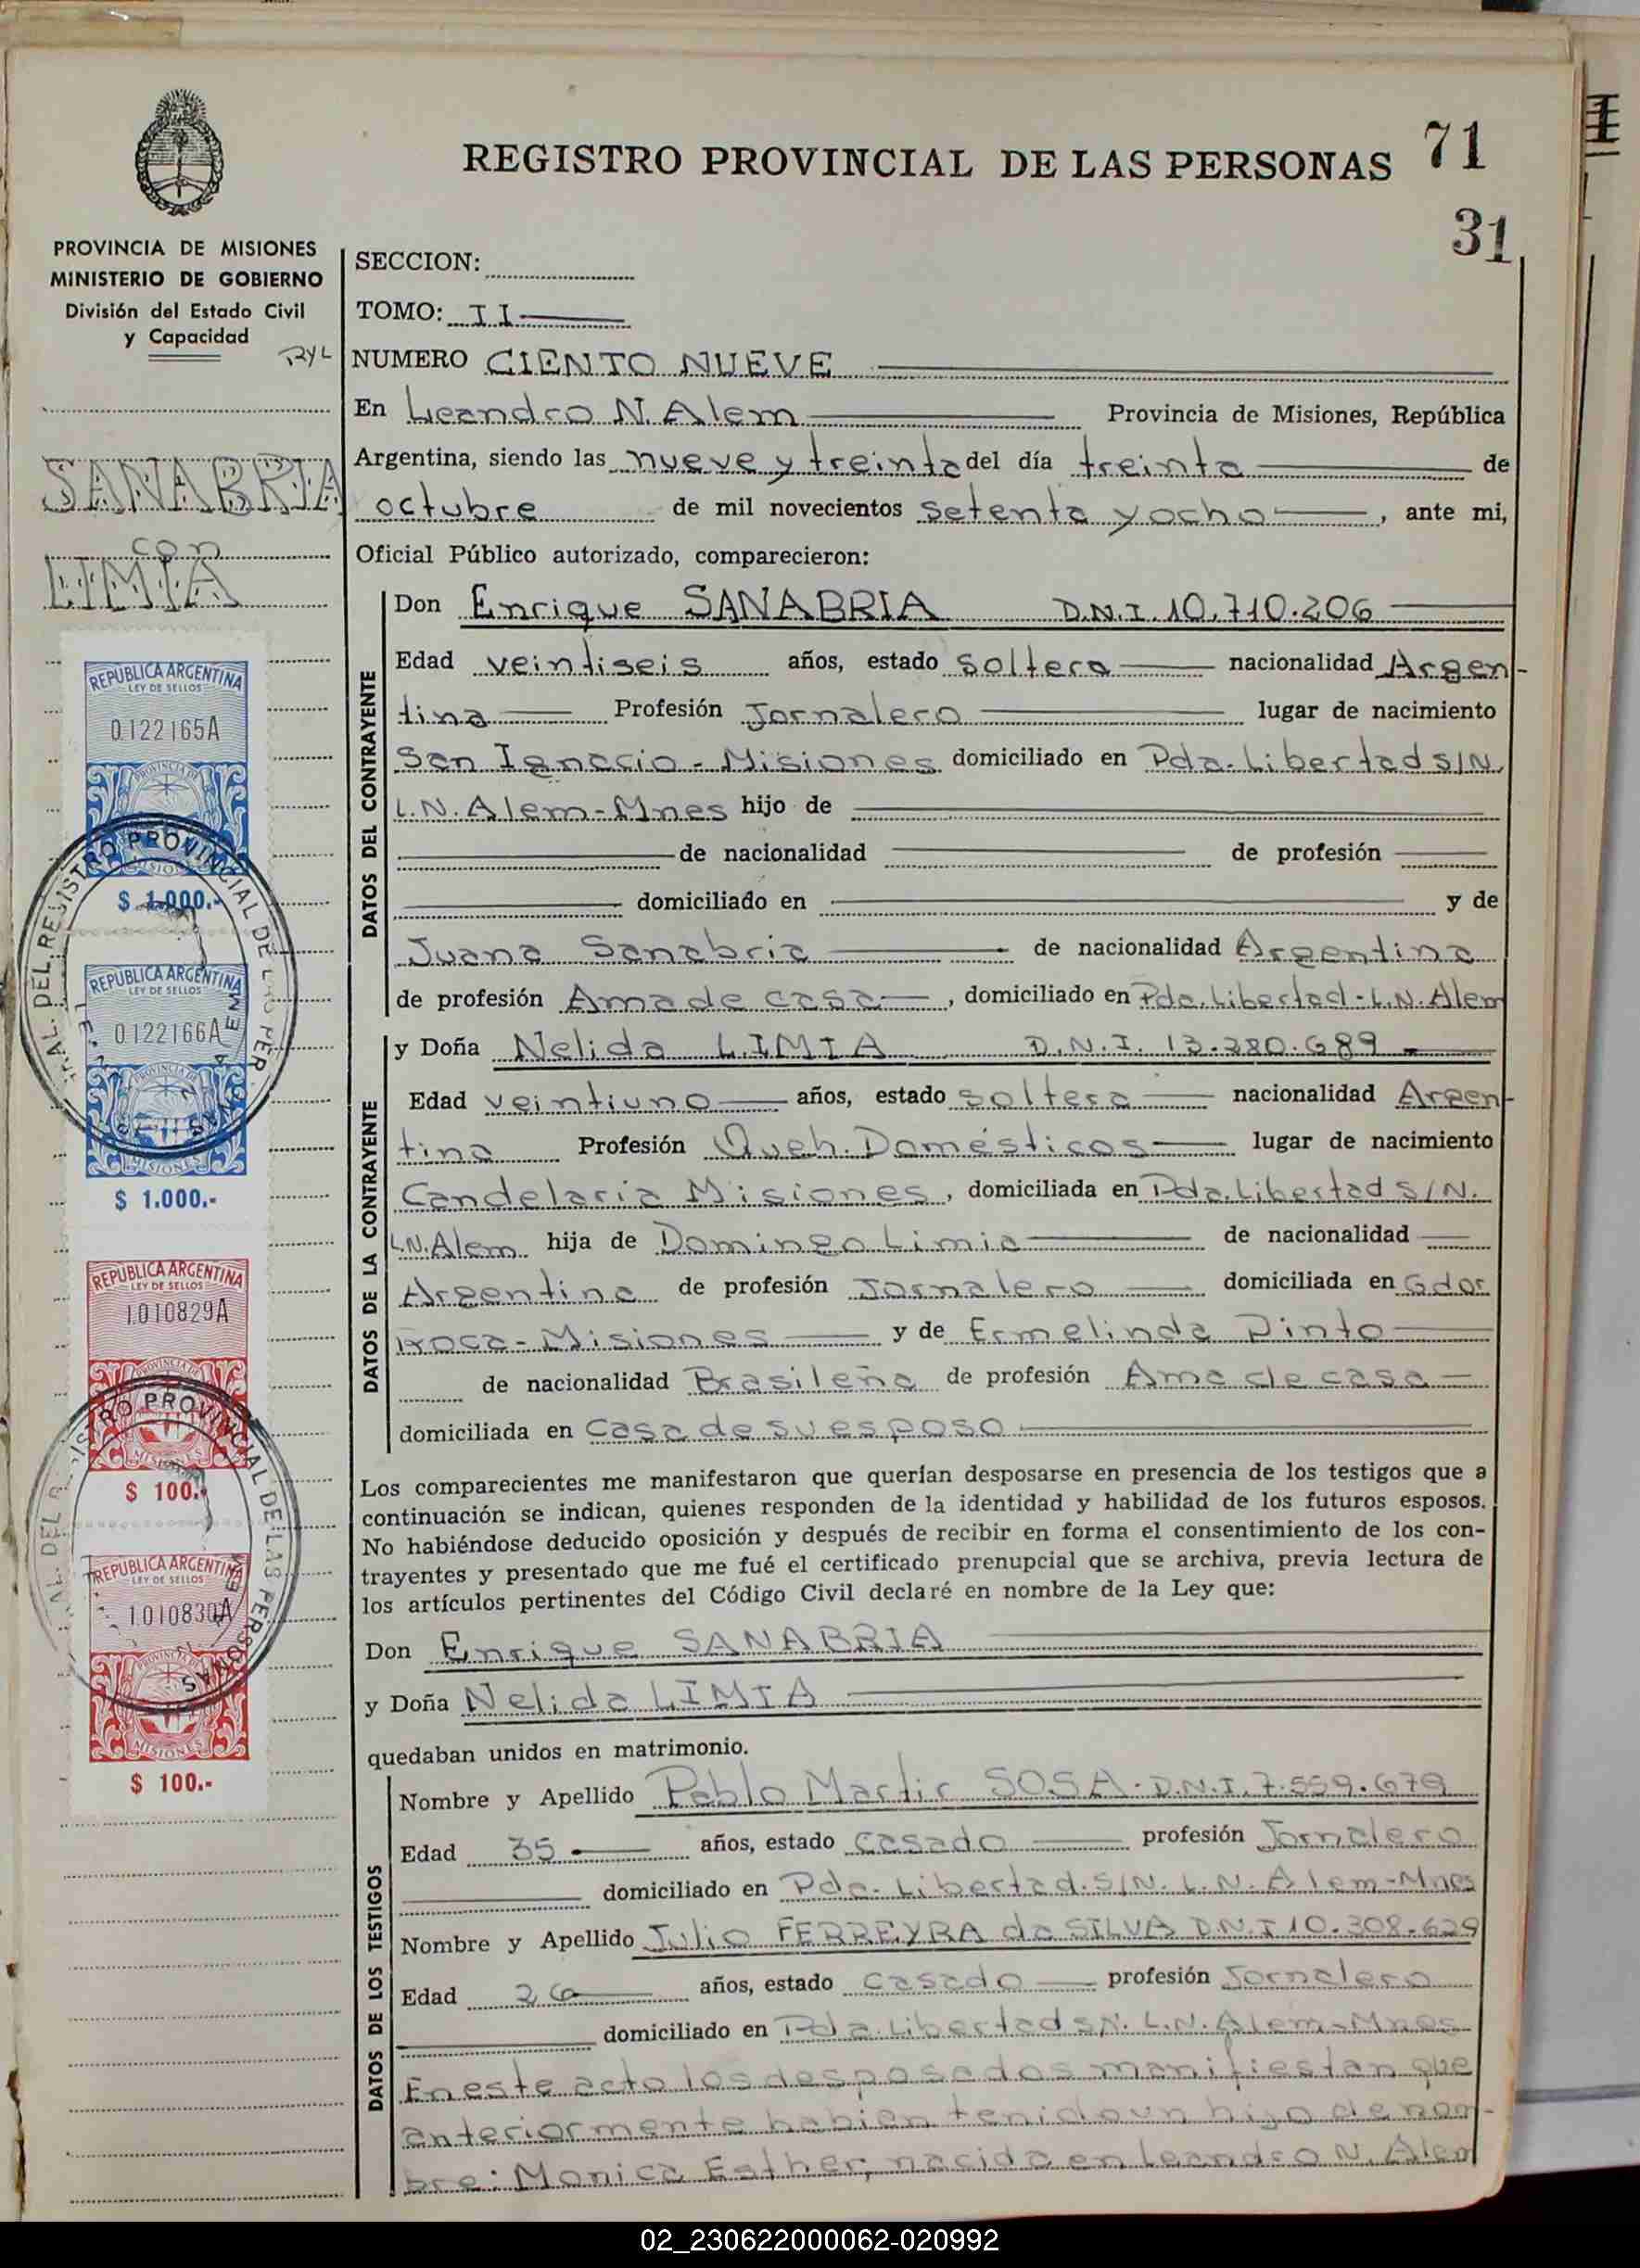 REGISTRO PROVINCIAL DE LAS PERSONAS 71
31
PROVINCIA DE MISIONES
MINISTERIO DE GOBIERNO
División del Estado Civil
y Capacidad
SANABRIA
con
LIMIA
REPUBLICA ARGENTINA
LEY DE SELLOS
0122165A
PROVINCIA DE
MISIONES
$ 1.000.-
REPUBLICA ARGENTINA
LEY DE SELLOS
0122166A
PROVINCIA DE
MISIONES
$ 1.000.-
REPUBLICA ARGENTINA
LEY DE SELLOS
1010829A
PROVINCIA DE
MISIONES
$ 100.-
REPUBLICA ARGENTINA
LEY DE SELLOS
1010830A
PROVINCIA DE
MISIONES
$ 100.-
SECCION:
TOMO: II
NUMERO CIENTO NUEVE
En Leandro N. Alem Provincia de Misiones, República
Argentina, siendo las nueve y treinta del día treinta de
octubre de mil novecientos setenta y ocho, ante mi,
Oficial Público autorizado, comparecieron:
DATOS DEL CONTRAYENTE
Don Enrique SANABRIA D.N.I. 10.710.206
Edad veintiseis años, estado soltero nacionalidad Argen-
tina Profesión Jornalero lugar de nacimiento
San Ignacio - Misiones domiciliado en Pda. Libertad S/N.
L.N. Alem-Mnes hijo de
de nacionalidad de profesión
domiciliado en y de
Juana Sanabria de nacionalidad Argentina
de profesión Ama de casa, domiciliado en Pda. Libertad - L.N. Alem
DATOS DE LA CONTRAYENTE
y Doña Nelida LIMIA D.N.I. 13.280.689
Edad veintiuno años, estado soltera nacionalidad Argen-
tina Profesión Queh. Domésticos lugar de nacimiento
Candelaria Misiones, domiciliada en Pda. Libertad S/N.
L.N. Alem hija de Domingo Limia de nacionalidad
Argentina de profesión Jornalero domiciliada en Gdor
Roca - Misiones y de Ermelinda Pinto
de nacionalidad Brasileña de profesión Ama de casa
domiciliada en Casa de su esposo
Los comparecientes me manifestaron que querían desposarse en presencia de los testigos que a
continuación se indican, quienes responden de la identidad y habilidad de los futuros esposos.
No habiéndose deducido oposición y después de recibir en forma el consentimiento de los con-
trayentes y presentado que me fué el certificado prenupcial que se archiva, previa lectura de
los artículos pertinentes del Código Civil declaré en nombre de la Ley que:
Don Enrique SANABRIA
y Doña Nelida LIMIA
quedaban unidos en matrimonio.
DATOS DE LOS TESTIGOS
Nombre y Apellido Pablo Martir SOSA - D.N.I. 7.559.679
Edad 35 años, estado casado profesión Jornalero
domiciliado en Pda. Libertad. S/N. L.N. Alem-Mnes
Nombre y Apellido Julio FERREYRA da SILVA D.N.I 10.308.629
Edad 26 años, estado casado profesión Jornalero
domiciliado en Pda. Libertad S/N. L.N. Alem-Mnes
En este acto los desposados manifiestan que
anteriormente habían tenido un hijo de nom-
bre: Monica Esther, nacida en Leandro N. Alem
02_230622000062-020992